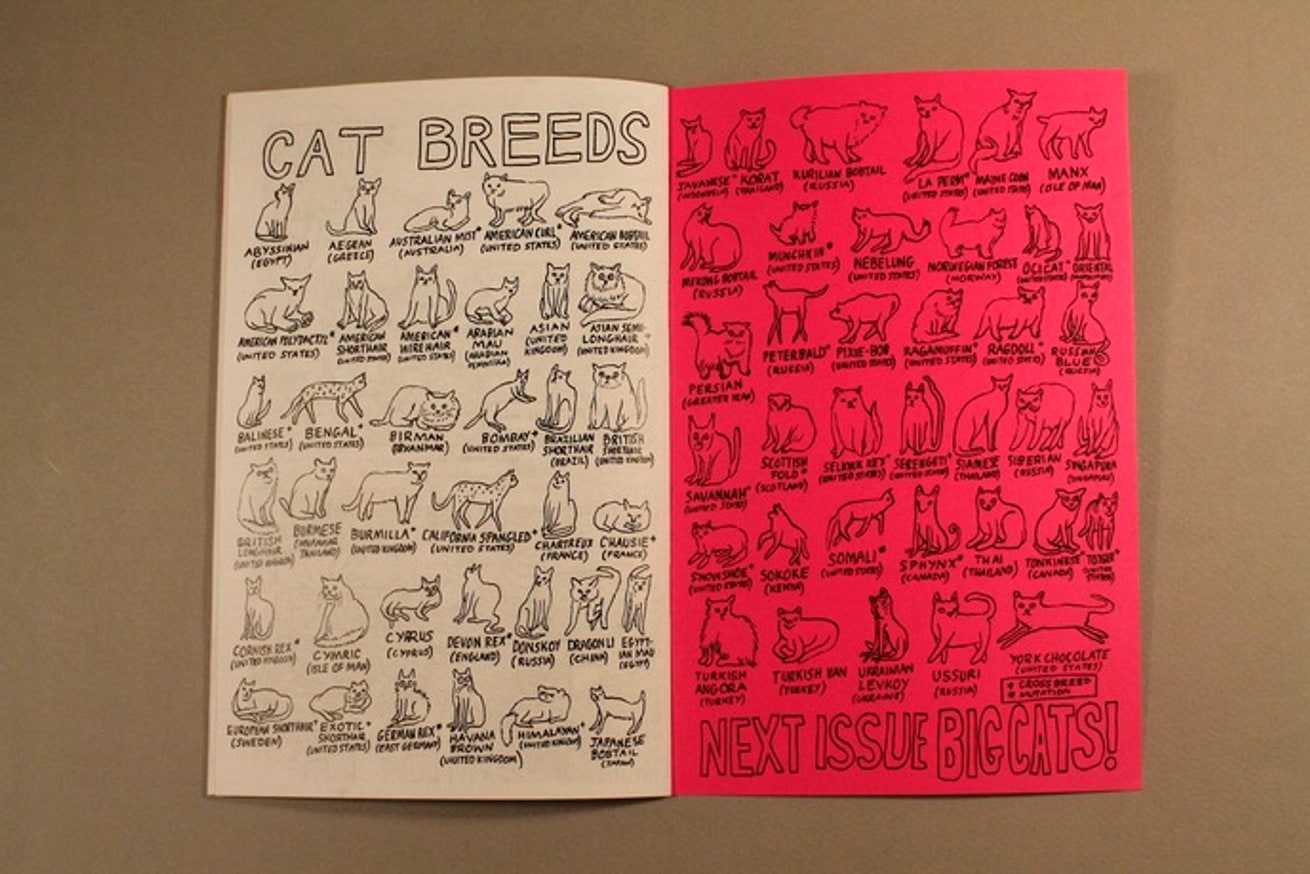 CAT BREEDS
ABYSSINIAN
(EGYPT)
AEGEAN
(GREECE)
AUSTRALIAN MIST*
(AUSTRALIA)
AMERICAN CURL*
(UNITED STATES)
AMERICAN BOBTAIL
(UNITED STATES)
AMERICAN POLYDACTYL*
(UNITED STATES)
AMERICAN
SHORTHAIR
(UNITED STATES)
AMERICAN*
WIREHAIR
(UNITED STATES)
ARABIAN
MAU
(ARABIAN
ASIAN
(UNITED
KINGDOM)
ASIAN SEMI-
LONGHAIR
(UNITED KINGDOM)
BALINESE*
(UNITED STATES)
BENGAL*
(UNITED STATES)
BIRMAN
(MYANMAR)
BOMBAY*
(UNITED STATES)
BRAZILIAN
SHORTHAIR
(BRAZIL)
BRITISH
SHORTHAIR
(UNITED KINGDOM)
BRITISH
LONGHAIR
(UNITED KINGDOM)
BURMESE
THAILAND)
BURMILLA*
(UNITED KINGDOM)
CALIFORNIA SPANGLED*
(UNITED STATES)
CHARTREUX
(FRANCE)
CHAUSIE*
(FRANCE)
CORNISH REX*
(UNITED KINGDOM)
CYMRIC
(ISLE OF MAN)
CYPRUS
(CYPRUS)
DEVON REX*
(ENGLAND)
DONSKOY
(RUSSIA)
DRAGON LI
(CHINA)
EGYPT-
IAN MAU
(EGYPT)
EUROPEAN SHORTHAIR*
(SWEDEN)
EXOTIC*
SHORTHAIR
(UNITED STATES)
GERMAN REX*
(EAST GERMANY)
HAVANA
BROWN
(UNITED KINGDOM)
HIMALAYAN*
(UNITED KINGDOM)
JAPANESE
BOBTAIL
(JAPAN)
JAVANESE*
(INDONESIA)
KORAT
(THAILAND)
KURILIAN BOBTAIL
(RUSSIA)
LA PERM*
(UNITED STATES)
MAINE COON
(UNITED STATES)
MANX
(ISLE OF MAN)
MEKONG BOBTAIL
(RUSSIA)
MUNCHKIN*
(UNITED STATES)
NEBELUNG
(UNITED STATES)
NORWEGIAN FOREST
(NORWAY)
OCICAT*
(UNITED STATES)
ORIENTAL
PERSIAN
(GREATER IRAN)
PETERBALD*
(RUSSIA)
PIXIE-BOB
(UNITED STATES)
RAGAMUFFIN*
(UNITED STATES)
RAGDOLL*
(UNITED STATES)
RUSSIAN
BLUE
(RUSSIA)
SAVANNAH*
(UNITED STATES)
SCOTTISH
FOLD*
(SCOTLAND)
SELKIRK REX*
(UNITED STATES)
SERENGETI*
(UNITED STATES)
SIAMESE
(THAILAND)
SIBERIAN
(RUSSIA)
SINGAPURA
(SINGAPORE)
SNOWSHOE*
(UNITED STATES)
SOKOKE
(KENYA)
SOMALI*
(UNITED STATES)
SPHYNX*
(CANADA)
THAI
(THAILAND)
TONKINESE
(CANADA)
TOYGER*
(UNITED
STATES)
TURKISH
ANGORA
(TURKEY)
TURKISH VAN
(TURKEY)
UKRAINIAN
LEVKOY
(UKRAINE)
USSURI
(RUSSIA)
YORK CHOCOLATE
(UNITED STATES)
* CROSSBREED
* MUTATION
NEXT ISSUE BIG CATS!